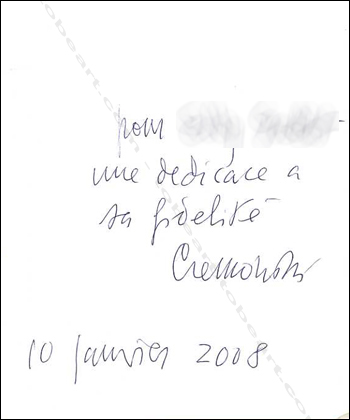 pour
une dédicace a
sa fidelité
Cremonini
10 janvier 2008